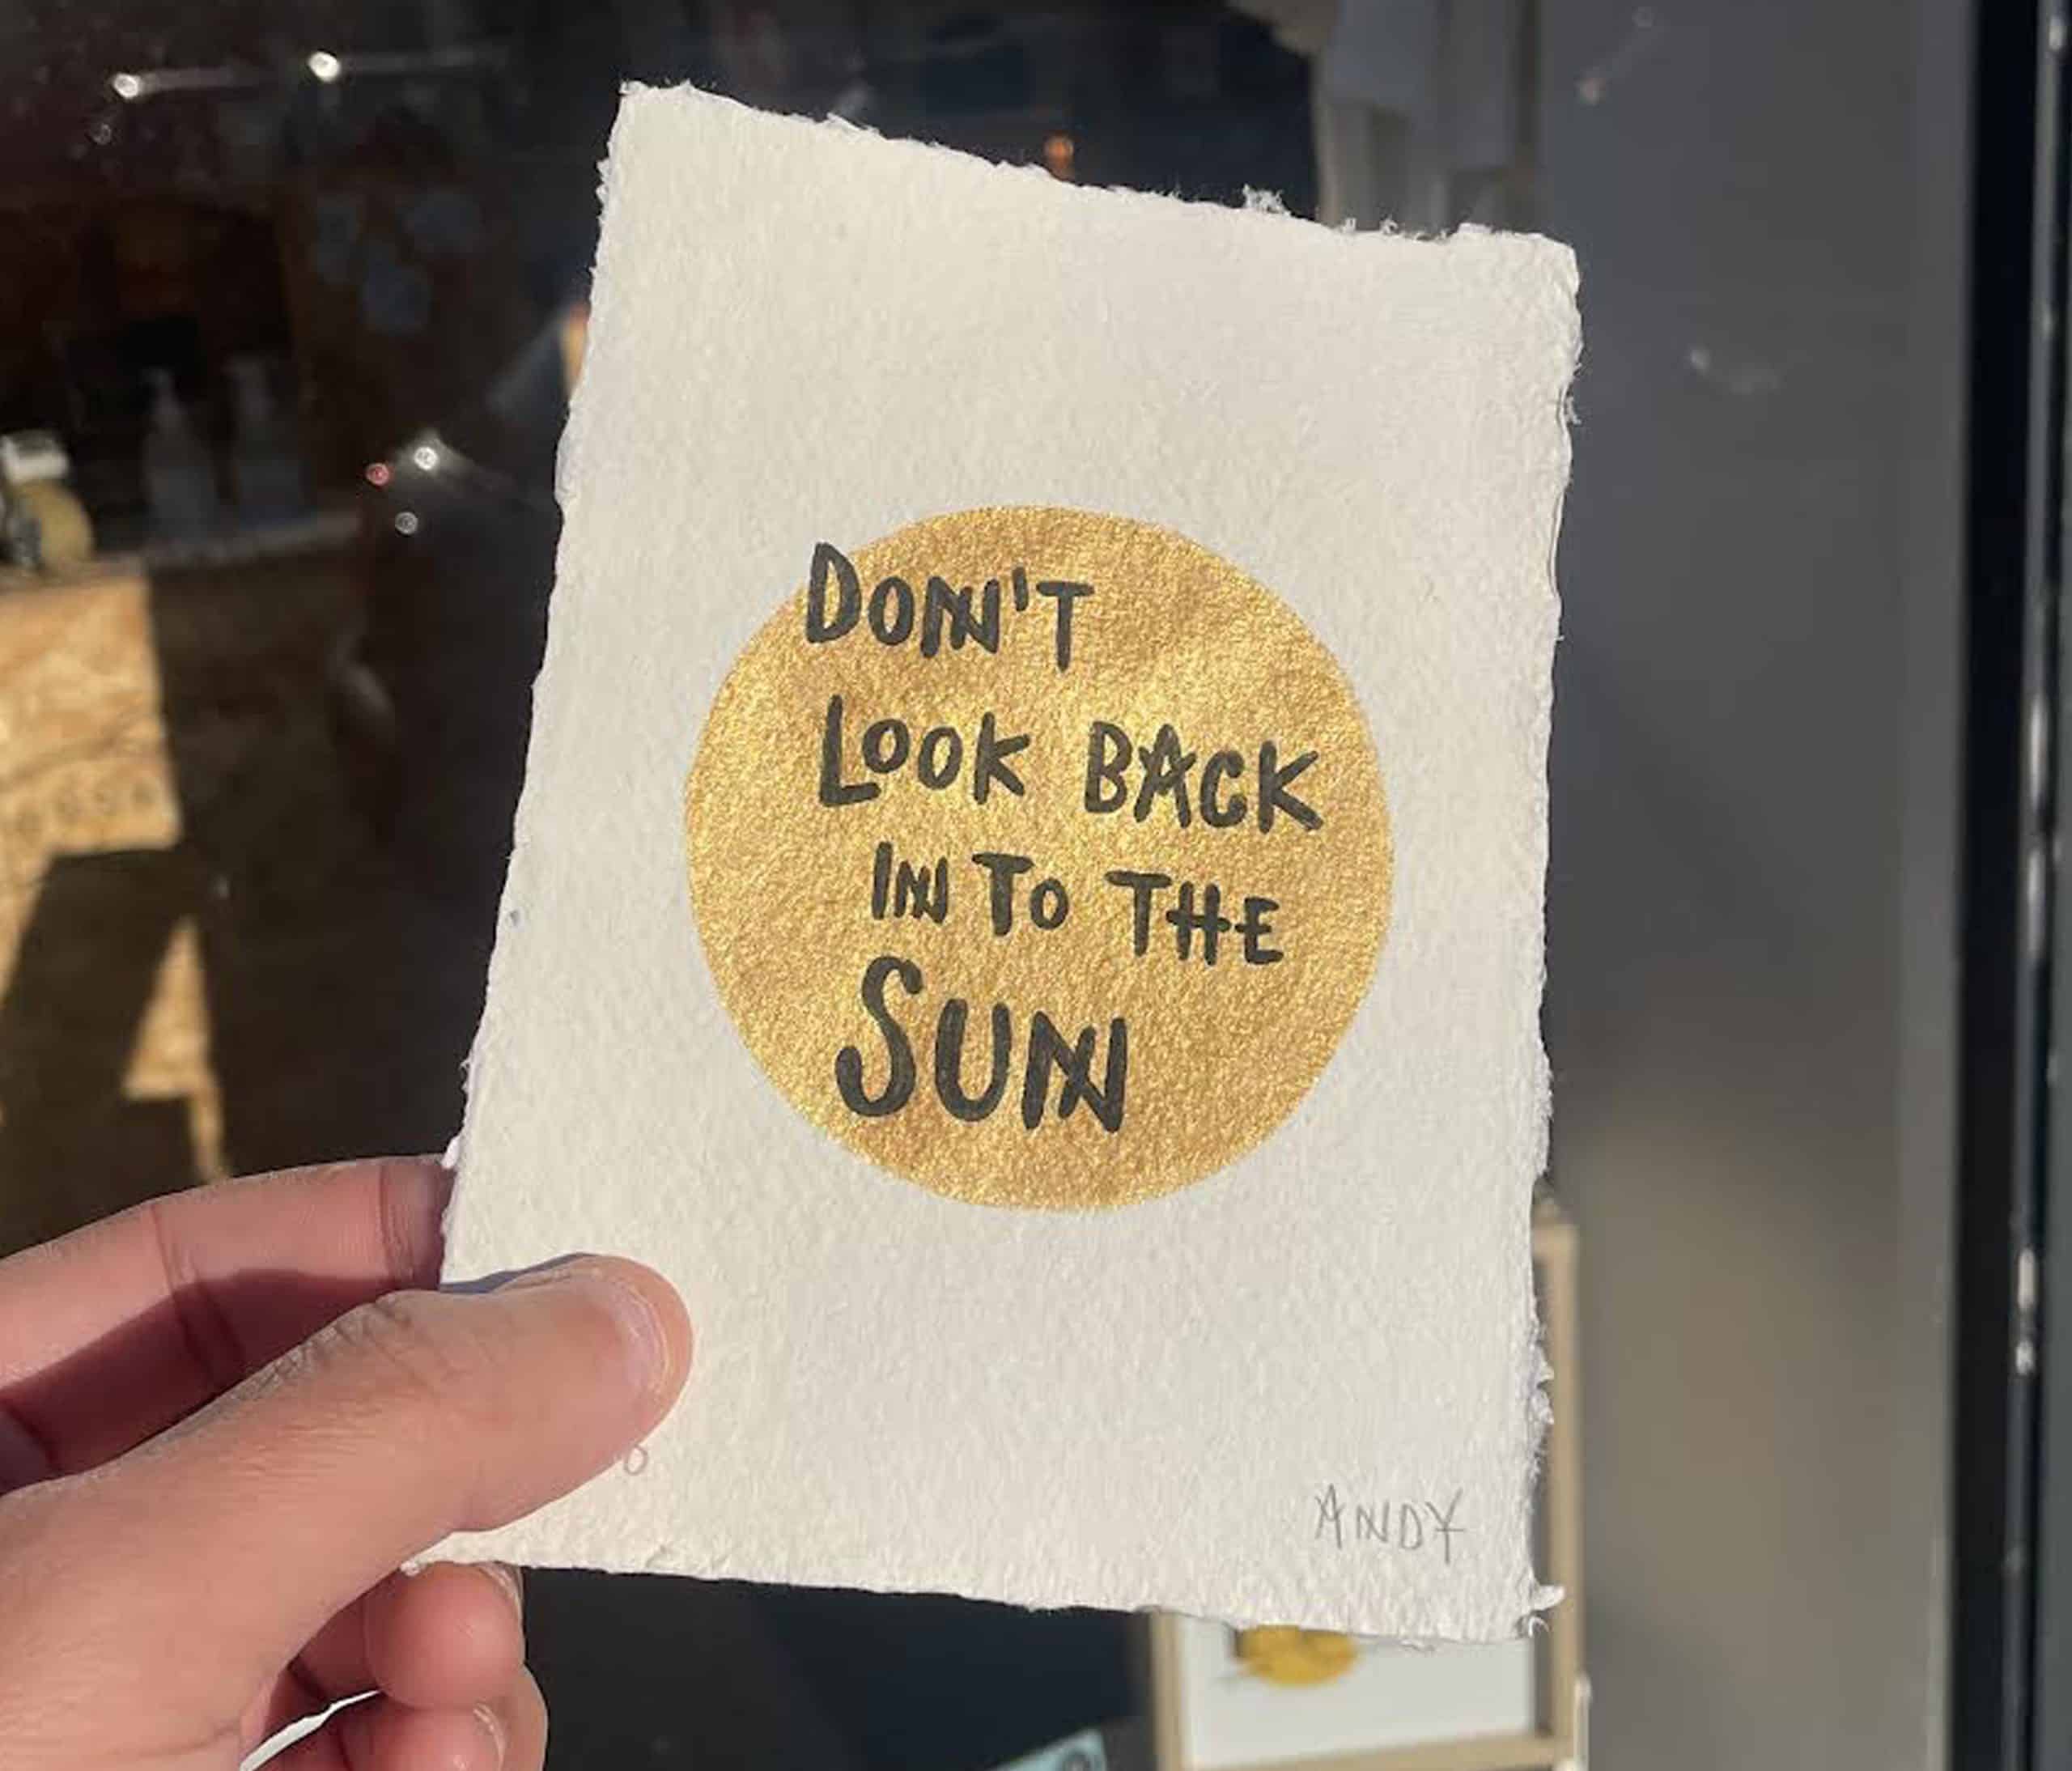 DON'T
LOOK BACK
IN TO THE
SUN
ANDY